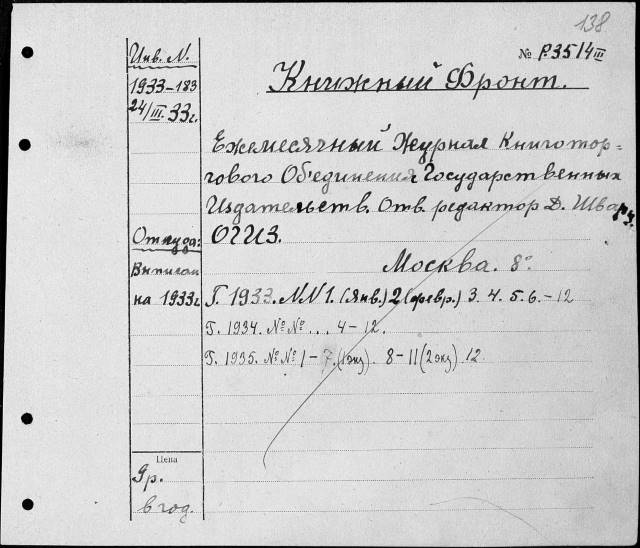 138
Инв. N.
№ P.35/4 III
1933-183
24/III.33г.
Книжный Фронт.
Ежемесячный Журнал Книготор=
гового Объединения Государственных
Издательств. Отв. редактор Д. Шварц.
Откуда:
ОГИЗ.
Москва. 8°.
Выписан
на 1933г.
Г. 1933. NN 1. (янв.) 2 (февр.) 3. 4. 5. 6.-12
Г. 1934. №№... 4-12.
Г. 1935. №№ 1-7. (1 экз) 8-11 (2 экз) 12.
Цена
9р.
в год.